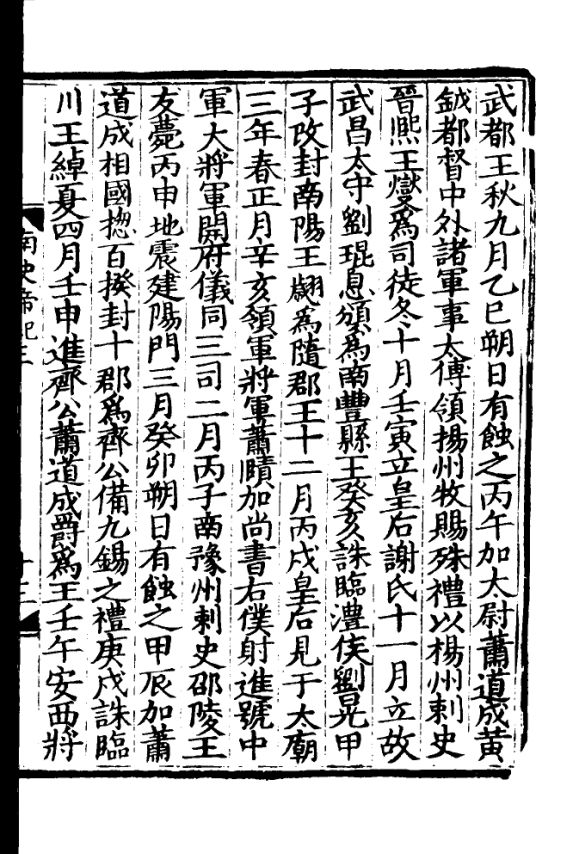 武都王秋九月乙巳朔日有蝕之丙午加太尉蕭道成黄
鉞都督中外諸軍事太傅領揚州牧賜殊禮以楊州刺史
晉熙王燮爲司徒冬十月壬寅立皇后謝氏十一月立故
武昌太守劉琨息頒爲南豐縣王癸亥誅臨澧侯劉晃甲
子改封南陽王翽爲隨郡王十二月丙戌皇后見于太廟
三年春正月辛亥領軍將軍蕭賾加尚書右僕射進號中
軍大將軍開府儀同三司二月丙子南豫州刺史邵陵王
友薨丙申地震建陽門三月癸卯朔日有蝕之甲辰加蕭
道成相國揔百揆封十郡爲齊公備九錫之禮庚戌誅臨
川王綽夏四月壬申進齊公蕭道成爵爲王壬午安西將
南史帝紀三
十三